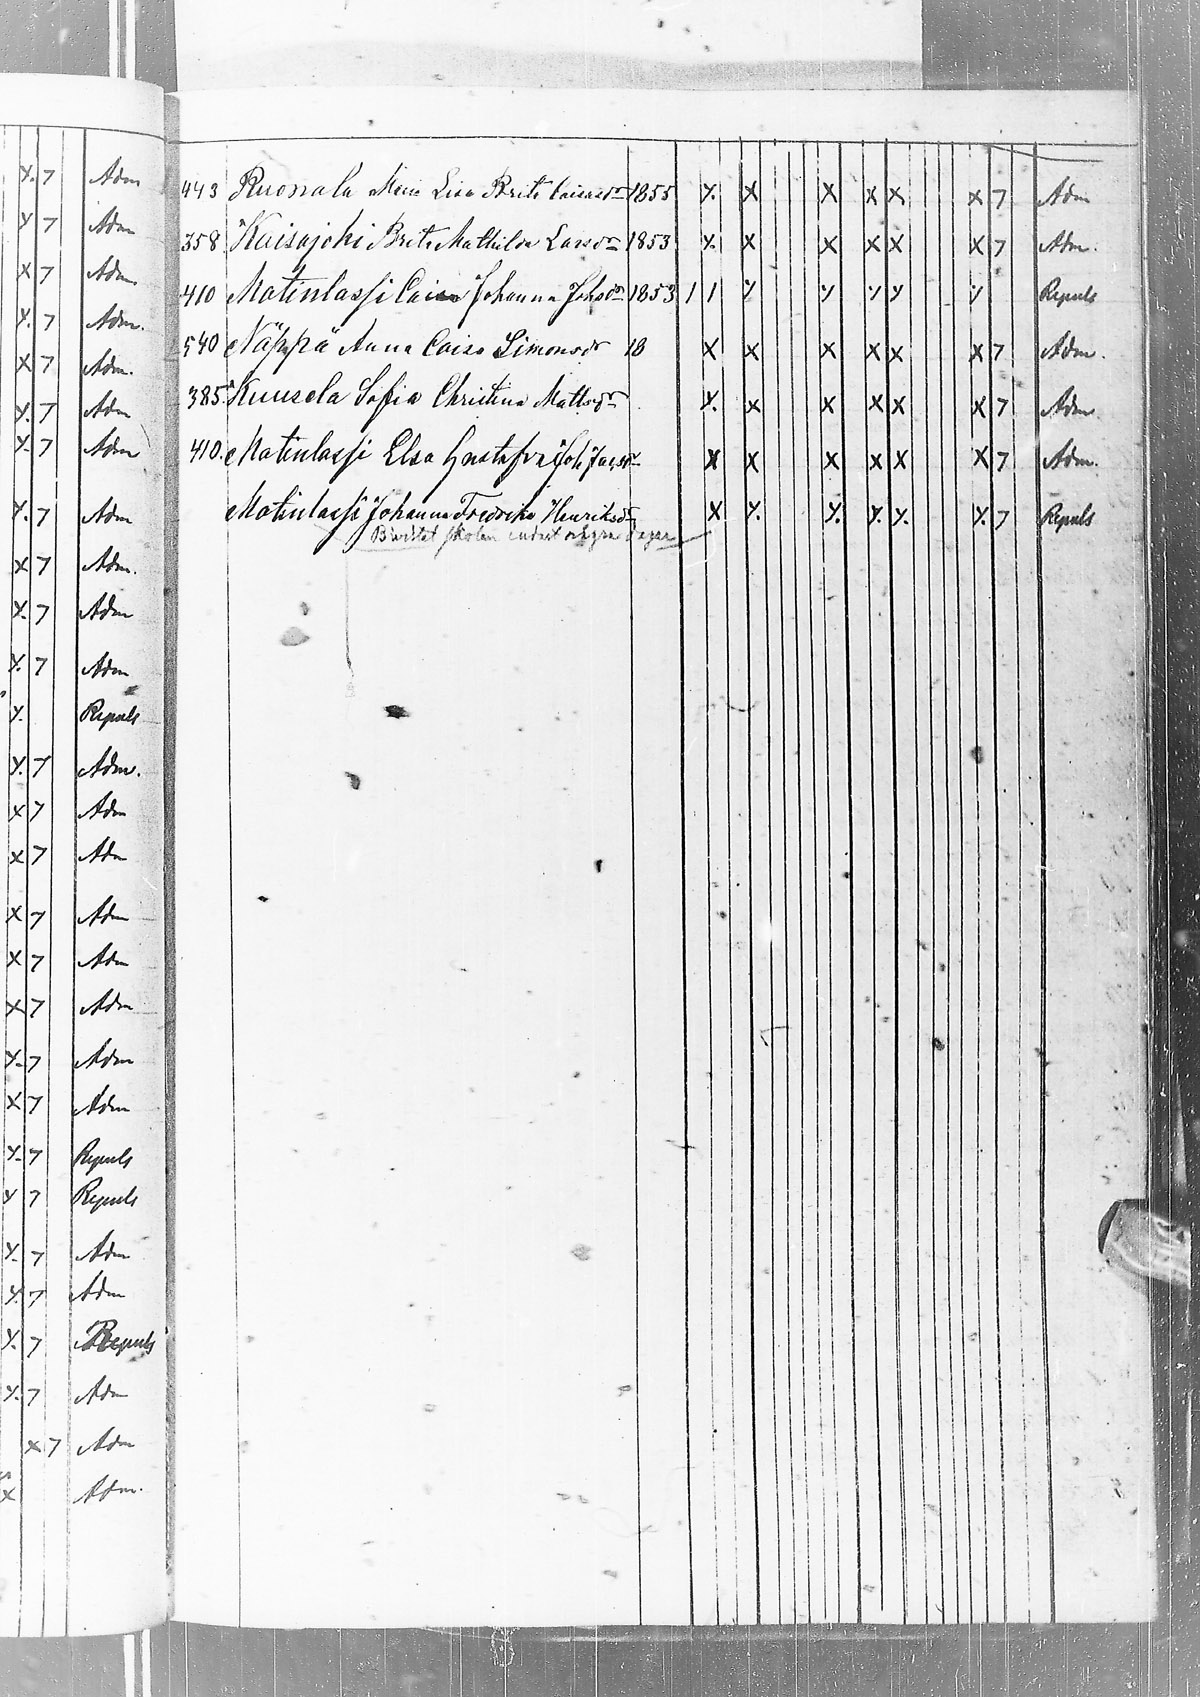 x. 7 Adm
x 7 Adm
x 7 Adm.
x. 7 Adm.
x 7 Adm.
x. 7 Adm
x. 7 Adm
x. 7 Adm
x 7 Adm.
x. 7 Adm
x. 7 Adm
x. Repuls
x. 7 Adm.
x 7 Adm
x 7 Adm
x 7 Adm
x 7 Adm
x 7 Adm
x. 7 Adm
x 7 Adm
x. 7 Repuls
x 7 Repuls
x. 7 Adm
x. 7 Adm
x. 7 Repuls
x. 7 Adm
x 7 Adm
x Adm.
443 Ruonala Maria Lisa Brita Caisasdr 1855 x. x x x x x 7 Adm
358 Kaisajoki Brita Mathilda Larsdr 1853 x. x x x x x 7 Adm.
410 Matinlassi Caisa Johanna Johsdr 1853 1 1 x x x x x Repuls
540 Näppä Anna Caisa Simonsdr 18 x x x x x x 7 Adm.
385 Kuusela Sofia Christina Mattsdr x. x x x x x 7 Adm
410. Matinlassi Elsa Gustafva Joh x x x x x x 7 Adm.
Matinlassi Johanna Fredrika Henriksdr x x. x. x. x. x. 7 Repuls
Bivistat skolan endast några dagar